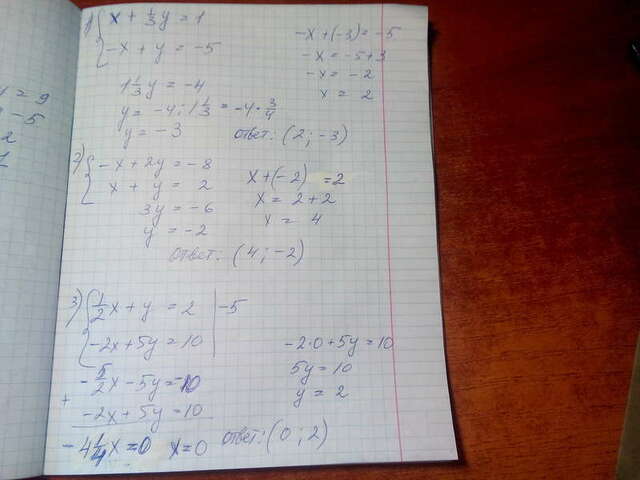 y = 9
- 5
2
1
1) { x + 1/3 y = 1
-x + y = -5
1 1/3 y = -4
y = -4 : 1 1/3 = -4 · 3/4
y = -3
-x + (-3) = -5
-x = -5+3
-x = -2
x = 2
ответ: (2; -3)
2) { -x + 2y = -8
x + y = 2
3y = -6
y = -2
x + (-2) = 2
x = 2 + 2
x = 4
ответ: (4; -2)
3) { 1/2 x + y = 2 | -5
-2x + 5y = 10
- 5/2 x - 5y = -10
+
-2x + 5y = 10
- 4 1/4 x = 0 x = 0
-2·0 + 5y = 10
5y = 10
y = 2
ответ: (0; 2)